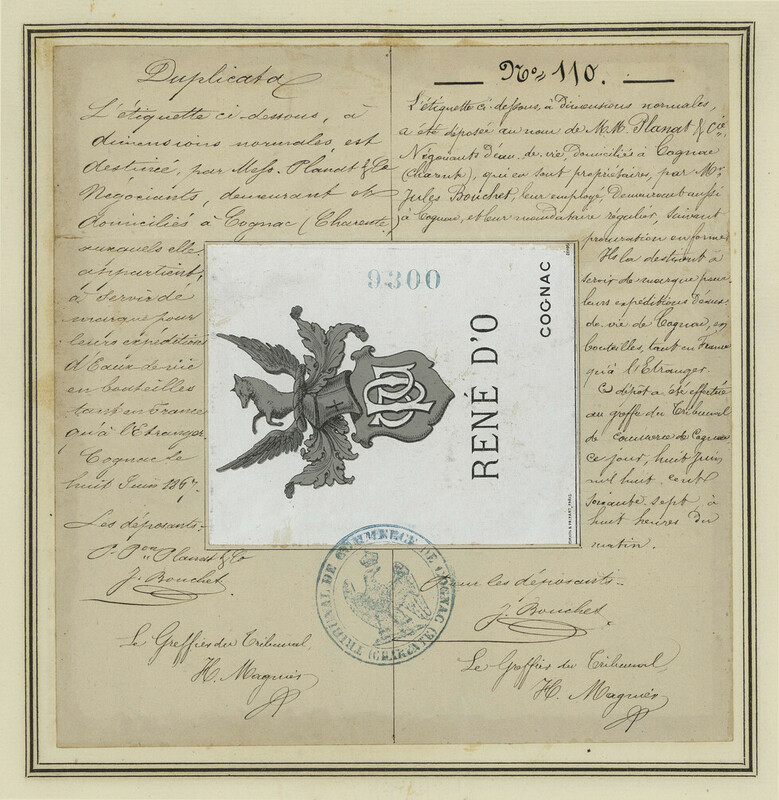 Duplicata
L'étiquette ci-dessous, à
dimensions normales, est
destinée, par Mess. Planat & Co
Négociants, demeurant et
domiciliés à Cognac (Charente)
auxquels elle
appartient,
à servir de
marque pour
leurs expéditions
d'Eaux de vie
en bouteilles
tant en France
qu'à l'Etranger.
Cognac le
huit Juin 1867.
Les déposants.
Pr. Pon Planat & Co
J. Bouchet.
Le Greffier du Tribunal,
H. Magnès
No. 110.
L'étiquette ci-dessous, à dimensions normales,
a été déposée au nom de M.M. Planat & Cie
Négociants d'eau-de-vie, domiciliés à Cognac
(Charente), qui en sont propriétaires, par Mr
Jules Bouchet, leur employé, demeurant aussi
à Cognac, et leur mandataire régulier, suivant
procuration en forme.
Ils la destinent à
servir de marque pour
leurs expéditions d'eaux-
de-vie de Cognac, en
bouteilles, tant en France
qu'à l'Etranger.
Ce dépôt a été effectué
au greffe du Tribunal
de commerce de Cognac
ce jour, huit Juin
mil huit cent
soixante sept, à
huit heures du
matin.
Pour les déposants.
J. Bouchet.
Le Greffier du Tribunal,
H. Magnès
9300
RENÉ D'O
COGNAC
TRIBUNAL DE COMMERCE DE COGNAC
(CHARENTE)